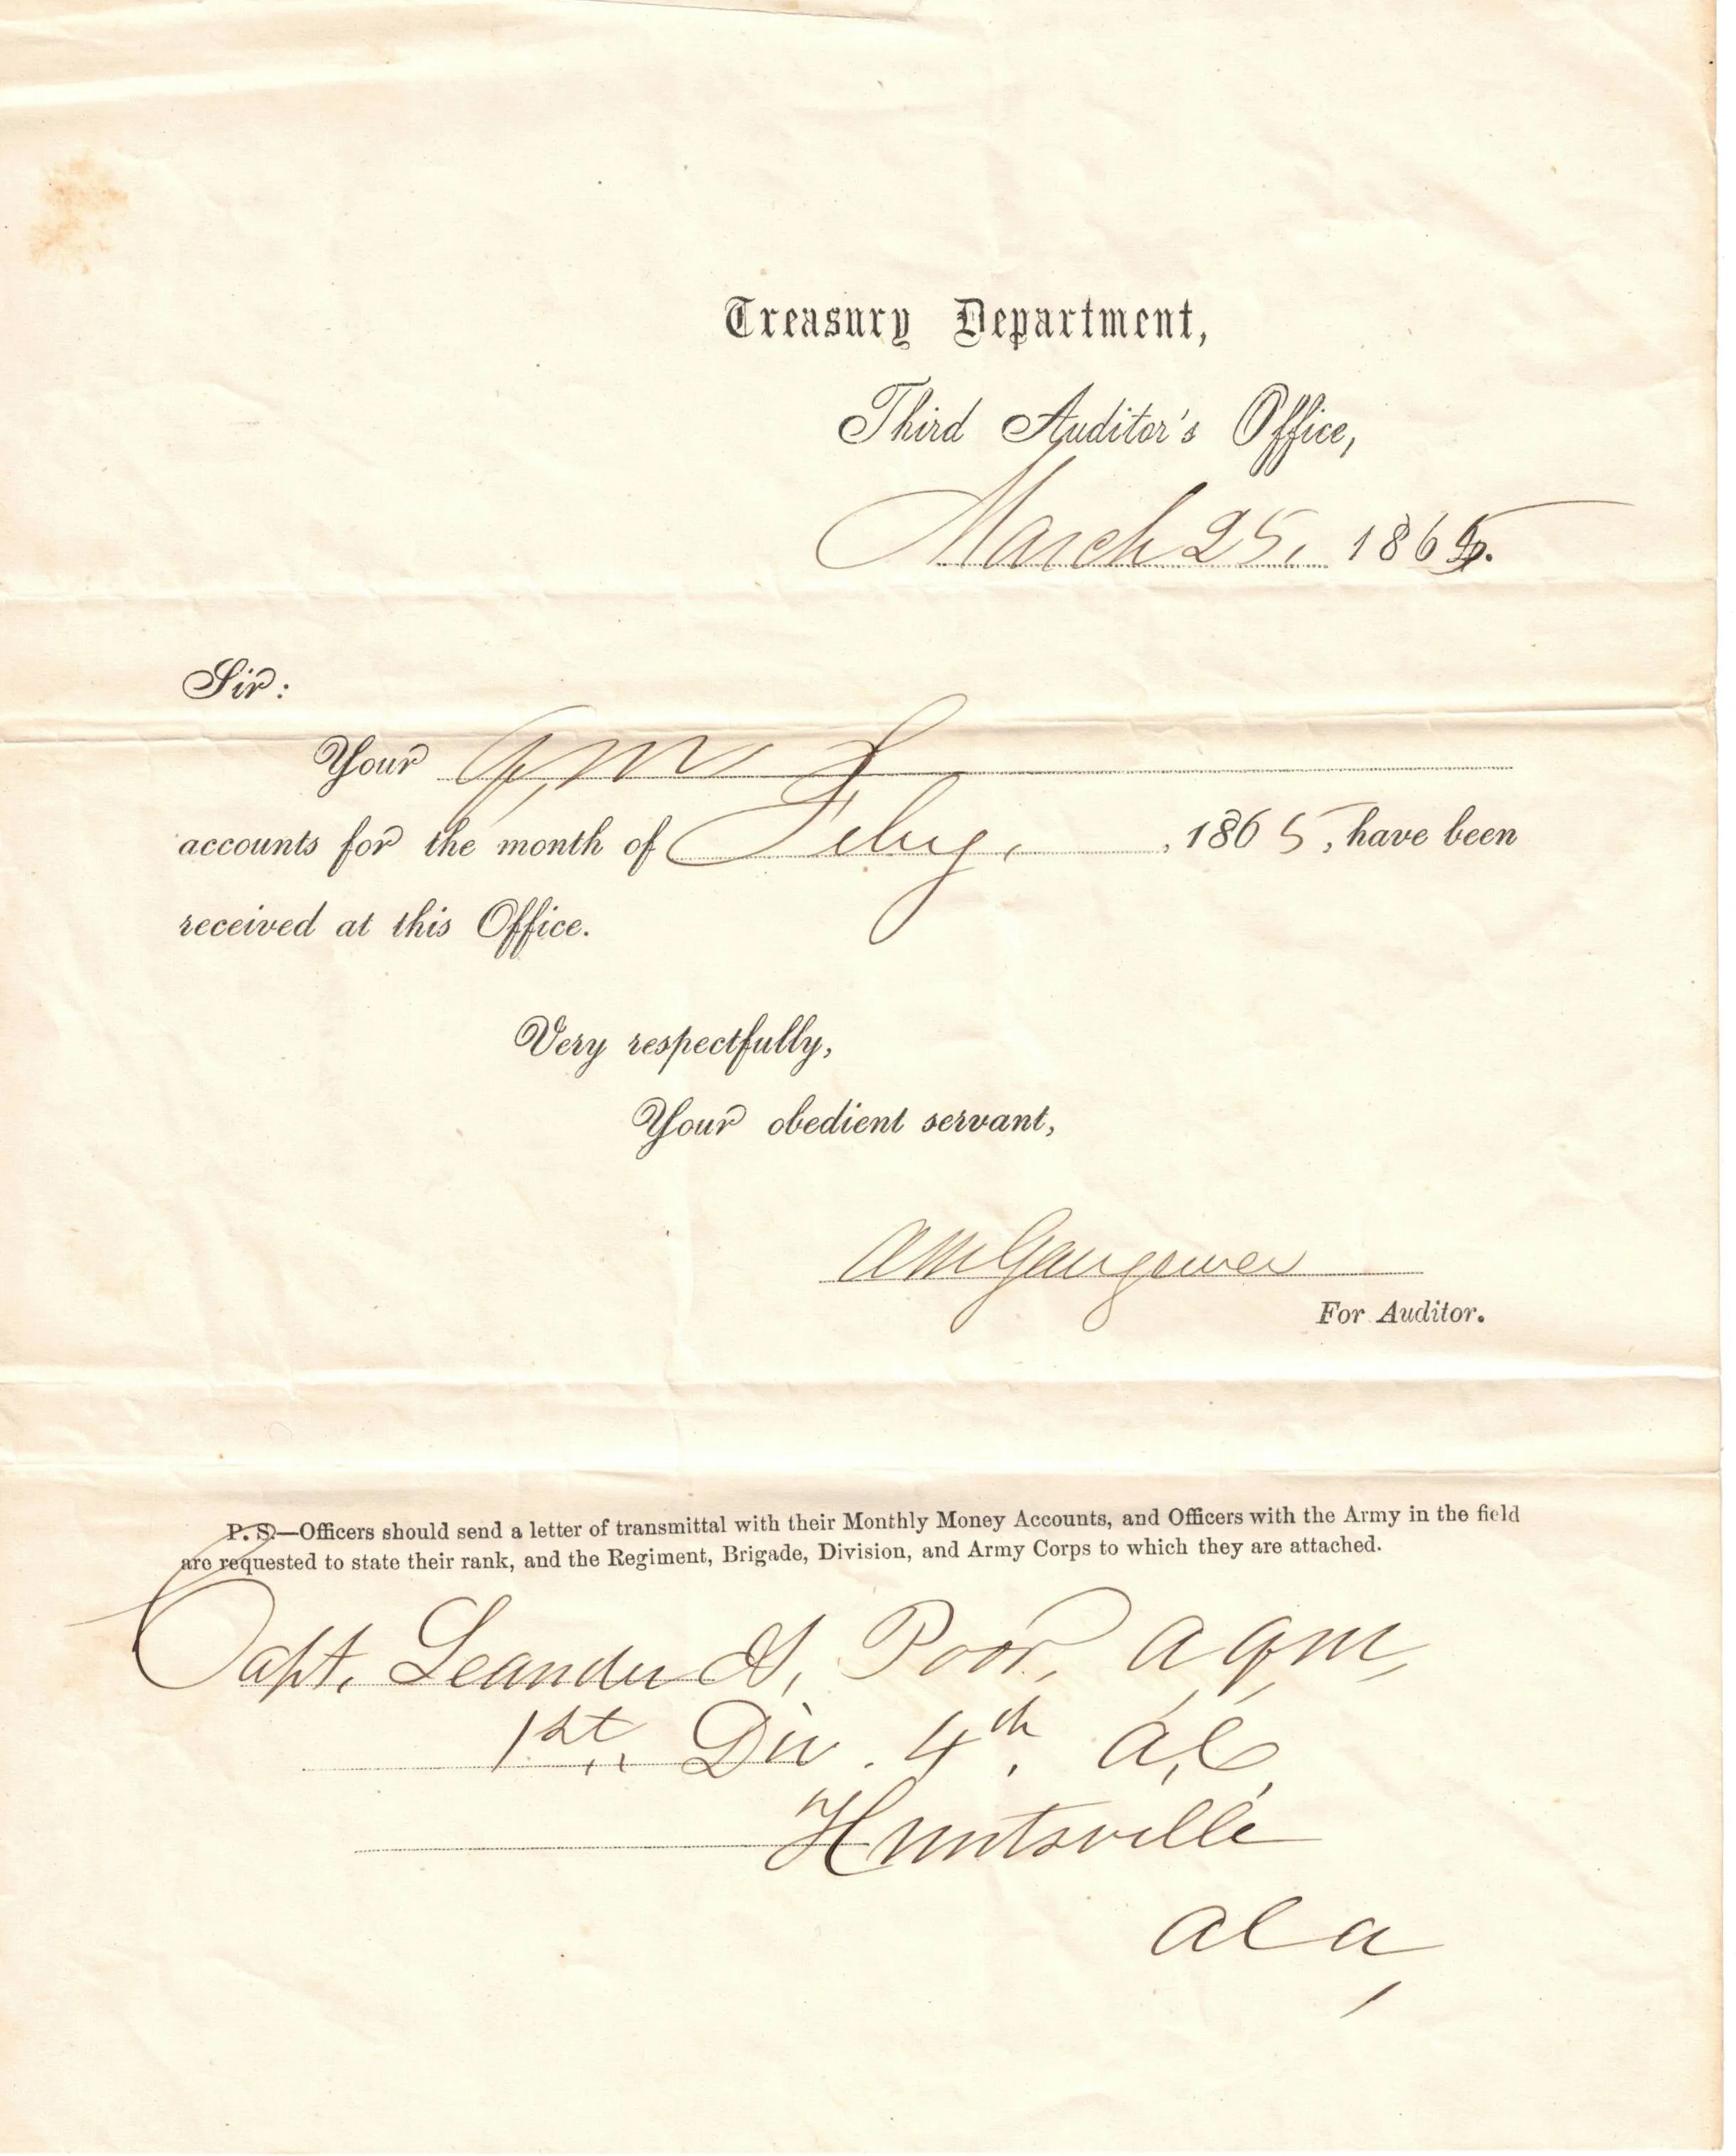 Treasury Department,
Third Auditor's Office,
March 25, 1865.
Sir:
Your Q, M,
accounts for the month of Feby. , 1865, have been
received at this Office.
Very respectfully,
Your obedient servant,
AM Gangewer
For Auditor.
P. S.—Officers should send a letter of transmittal with their Monthly Money Accounts, and Officers with the Army in the field
are requested to state their rank, and the Regiment, Brigade, Division, and Army Corps to which they are attached.
Capt. Leander Poor, A, Q, M,
1st. Div. 4th. A, C,
Huntsville
Ala,